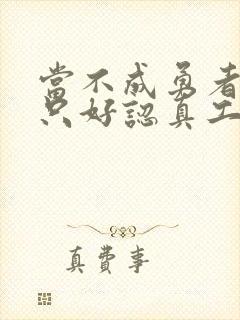 當不成勇者
只好認真工
真費事